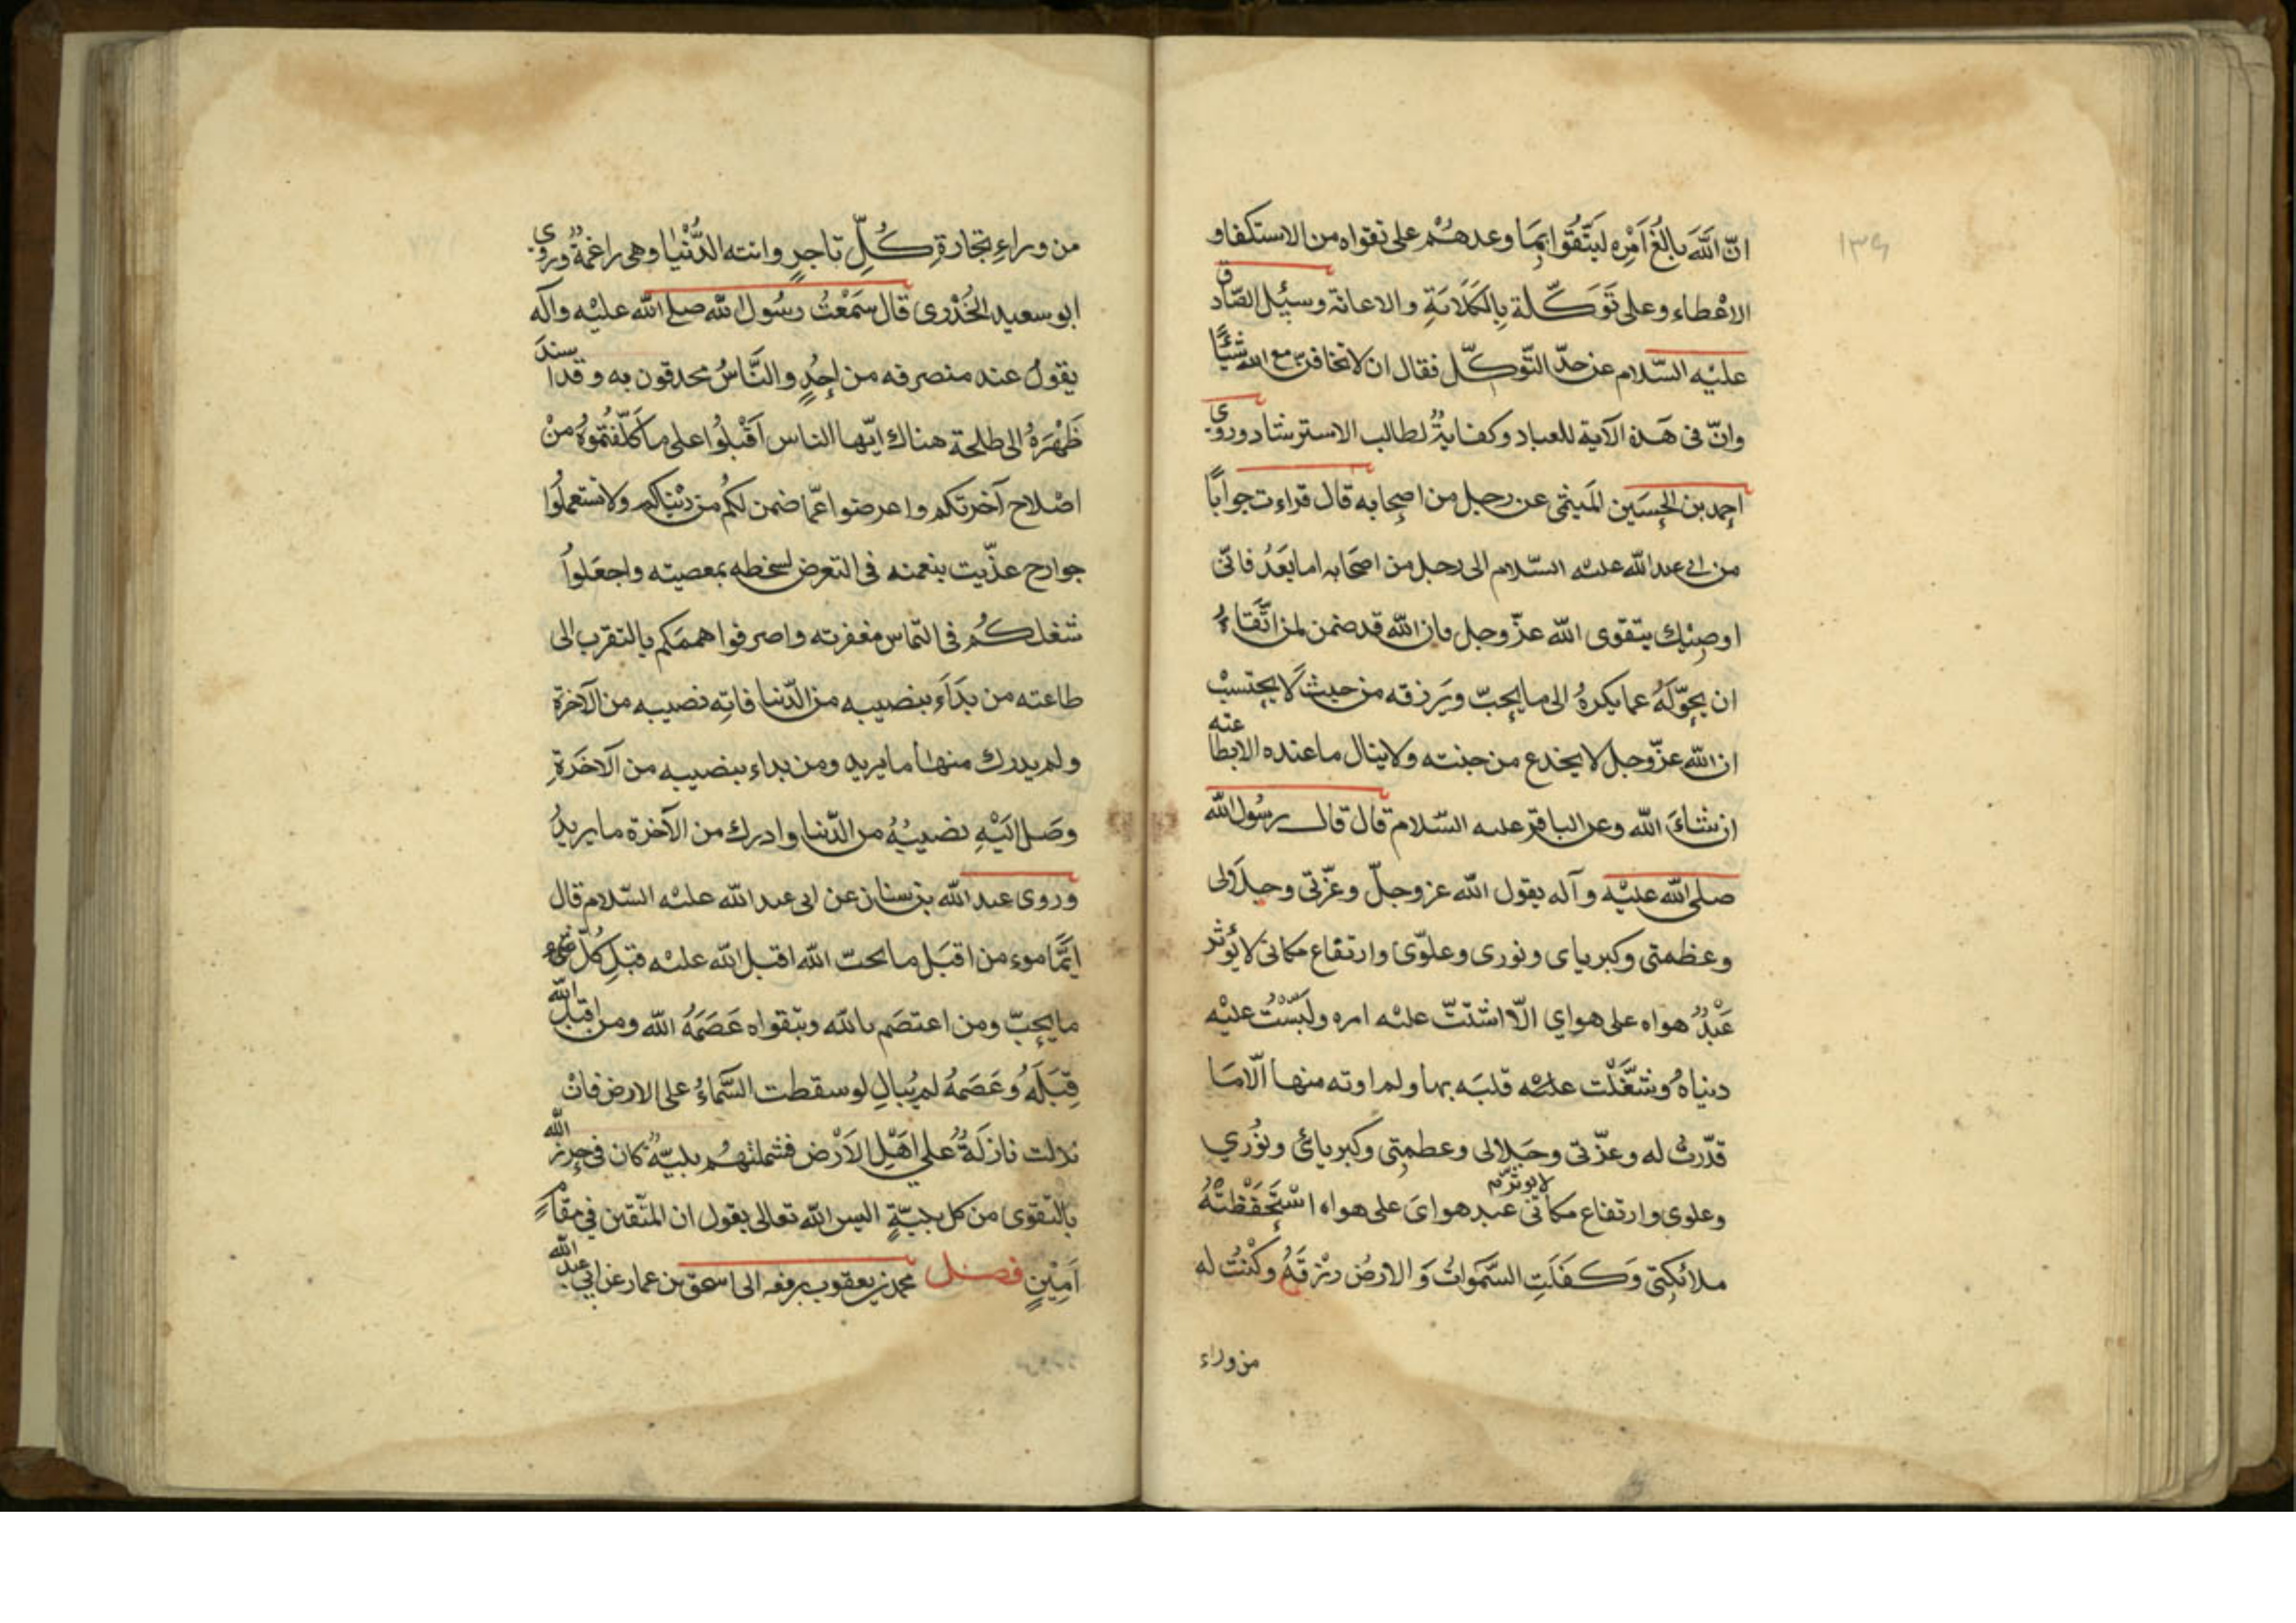 ١٣٩
انّ اللّٰه بالغُ اَمْرِه ليتّقوا بِمَا وعدهُمْ على تقواه من الاستكفاو
الاعْطاء وعلى تَوَكّله بالكَلَايَةِ والاعانة وسئِل الصّادق
عليْه السّلام عن حدّ التّوكّل فقال ان لا تخافنّ مع اللّه شيئًا
وانّ فى هَذه الآية للعباد وكفايةٌ لطالب الاسترشاد وروى
احمد بن الحسَين المَيثمى عن رجل من اصحابه قال قراءت جوابًا
من ابى عبد اللّه عليه السّلام الى رجل من اصحَابه اما بَعَدُ فانّى
اوصِيْك بتقوى اللّه عزّ وجل فان اللّه قد ضمن لمن اتَّقاءُ
ان يحوّلَهُ عما يكرهُ الى ما يحبّ ويَرزقه من حيث لَا يحتسبْ
ان اللّه عزّ وجل لا يخدع من جنته ولا ينال ما عنده الا بطاعته
ان شاءَ اللّه وعن الباقر عليه السّلام قال قال رسُول اللّه
صلى اللّه عليْه وآله يقول اللّه عز وجلّ وعزّتى وجلَالى
وعظمتى وكبرياى ونورى وعلوّى وارتفاع مكانى لا يُؤثر
عَبْدٌ هواه على هواي الّا اشتتّ عليْه امره ولَبّسْتُ عليْه
دنياهُ وشَغَّلْت عليْه قلبَه بها ولم اوته منها الّا مَا
قدّرتُ له وعزّتى وجَلالى وعظمتِى وكبريائ ونُوري
وعلوى وارتفاع مكانى لا يوثر عَبد هواىَ على هواه اسْتَحْفَظتْهُ
ملائكِتى وَكفَلَتِ السَّمَواتُ وَالارضُ رِزْقَهُ وَكُنْتُ له
من وراء
من وراءِ تجارةِ كُلِّ تاجرٍ واتته الدُّنْيا وهى راغمةٌ وروى
ابو سعيد الخُدْرى قال سَمَعْتُ رسُول اللّه صلى اللّه عليْه وآله
يقولُ عند منصرفه من اُحُدٍ والنَّاسُ محدقون به وقد اسند
ظَهْرَهُ الى طلحة هناك ايّها الناس اَقْبلُوا على ما كَلّفتُمُوهُ مِنْ
اصْلاح آخرتكم واعرضوا عمّا ضمن لكُم من دُنْياكم ولا تستعملُوا
جوارح غذّيت بنعمته فى التعرض لسخطه بمعصيته واجعَلواُ
شغلكُم فى التماس مغفرته واصرفوا هممَكم بالتقرب الى
طاعته من بَدَاءَ بنصيبه من الدّنيا فاتِه نصيبه من الآخرة
ولم يدرك منها ما يريد ومن بداء بنصيبه من الآخَرةِ
وصَل اِلَيْهِ نصيبُهُ من الدّنيا وادرك من الآخرة ما يريدُ
وروى عبد اللّه بن سنان عن ابى عبد اللّه عليْه السّلام قال
ايُّما موءمن اقبَل ما يحبّ اللّه اقبل اللّه عليْه قبل كُلّ شىء
ما يحبّ ومن اعتصَم باللّه وبتقواه عَصَمَهُ اللّه ومن اقبل اللّه
قِبَلَهُ وَعَصَمَهُ لم يُبالِ لو سقطت السَّماءُ على الارض فانْ
نزلت نازلَةٌ على اَهْلِ الاَرْض فشملتهُم بليّةٌ كان فى حِرزِ اللّه
بالتقوى من كل بليّةٍ اليس اللّه تعالى يقول ان المتّقين فى مقامٍ
اَمِيْنٍ فصل محمد بن يعقوب يرفعه الى اسحق بن عمار عن ابى عبد اللّه